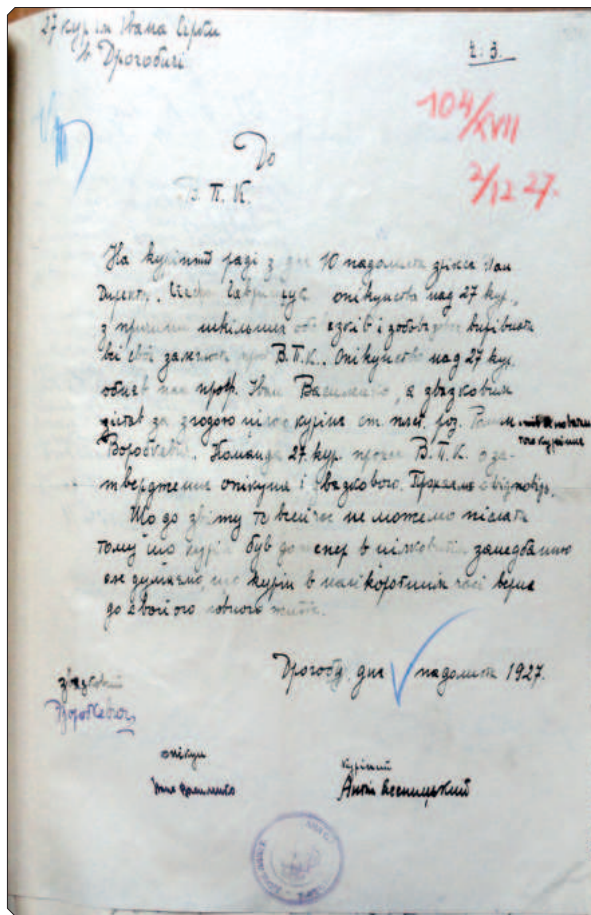 27 курінь Івана Сірка
в Дрогобичі
ч. 3.
104/XVII
2/12 27.
До
В. П. К.
На курінній раді з дня 10 падолиста зрікся Пан
Директ. Гаврищук опікунства над 27 кур.,
з причини шкільних обовязків і
всі свої В.П.К. Опікунство над 27 кур.
обняв пан проф. Іван Василишко, а звязковим
зістав за згодою цілого куріня ст. плст. роз. Роман
Воробкевич. Команда 27 кур. просить В. П. К. о за-
твердження опікуна і звязкового. Прохаємо о відповідь.
Що до звіту то ще не можемо післати
тому що курінь був до тепер в цілковитім занедбанню
але думаємо, що курінь в найкоротшім часі верне
до свойого повного життя.
Дрогобич, дня падолиста 1927.
звязковий
Воробкевич
опікун
курінний
Антін